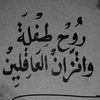 رُوحُ طِفْلَةٍ
وَاتِّزَانُ العَاقِلِينْ